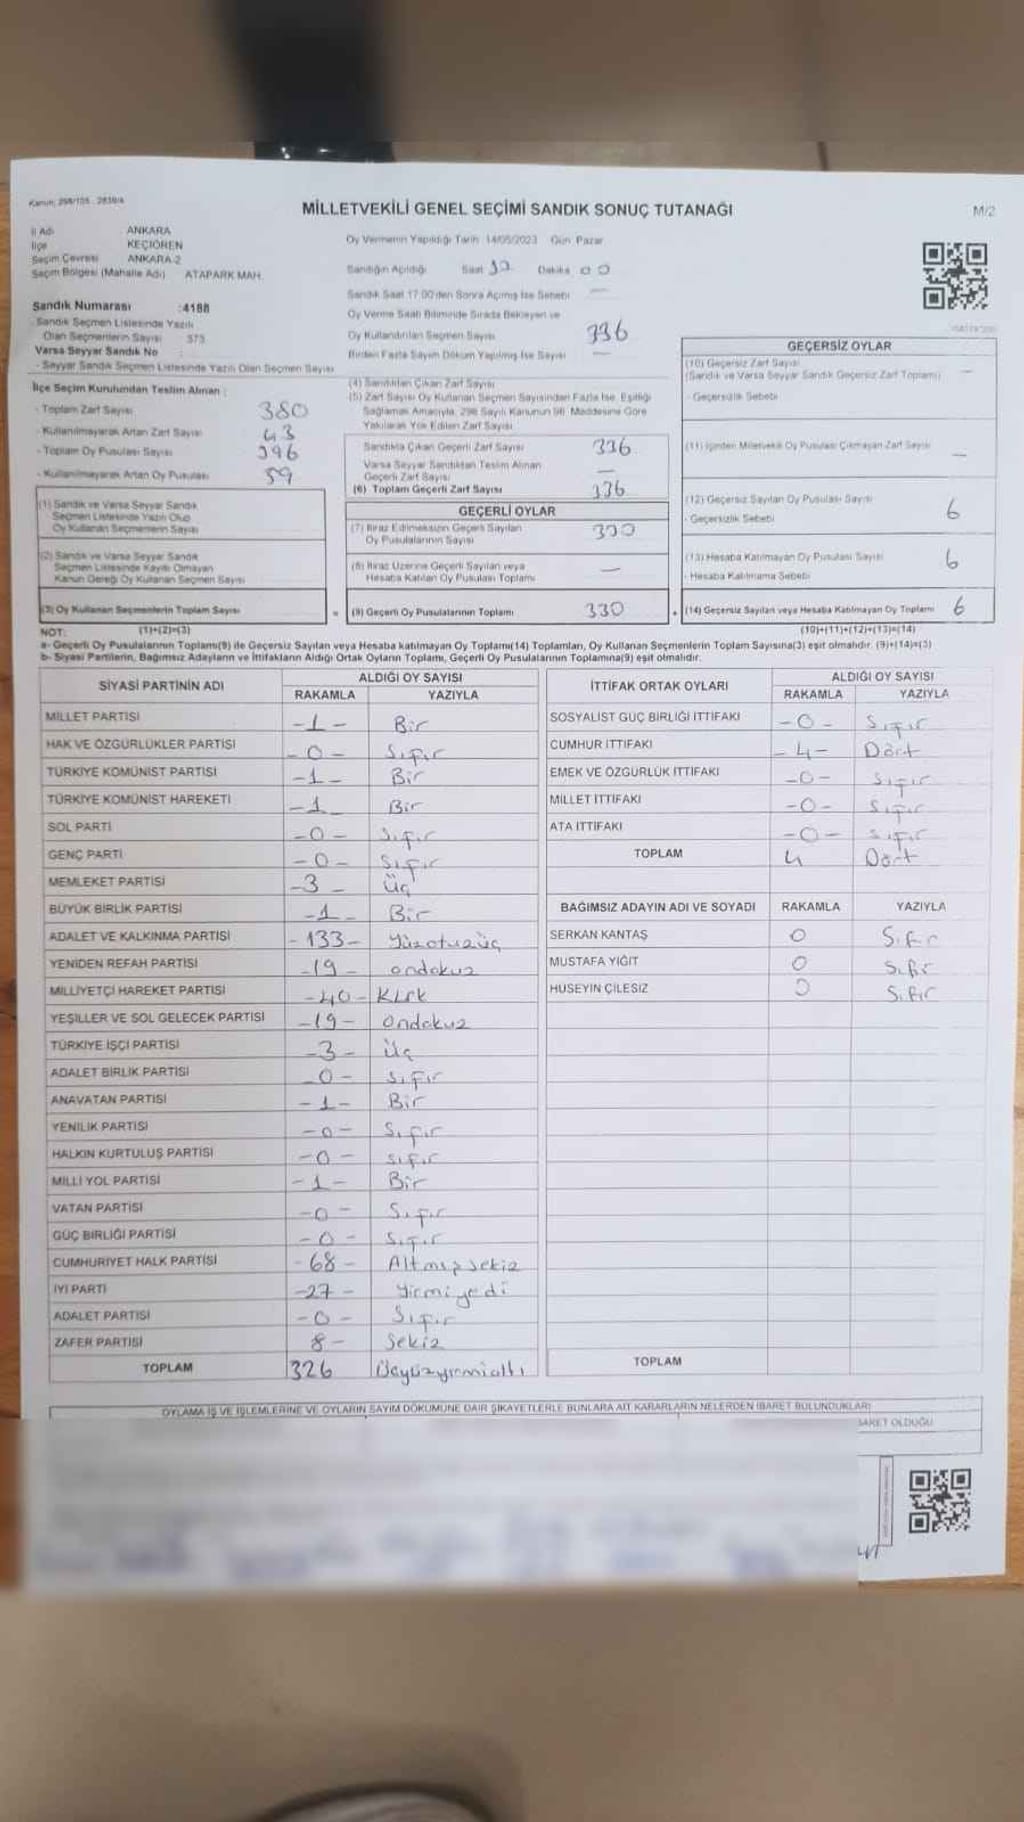 Kanun: 298/105 - 2839/4
MİLLETVEKİLİ GENEL SEÇİMİ SANDIK SONUÇ TUTANAĞI
M/2
İl Adı ANKARA
İlçe KEÇİÖREN
Seçim Çevresi ANKARA-2
Seçim Bölgesi (Mahalle Adı) ATAPARK MAH.
Sandık Numarası :4188
- Sandık Seçmen Listesinde Yazılı
Olan Seçmenlerin Sayısı 373
Varsa Seyyar Sandık No
- Seyyar Sandık Seçmen Listesinde Yazılı Olan Seçmen Sayısı
Oy Vermenin Yapıldığı Tarih 14/05/2023 Gün Pazar
Sandığın Açıldığı Saat Dakika 00
Sandık Saat 17:00'den Sonra Açılmış İse Sebebi —
Oy Verme Saati Bitiminde Sırada Bekleyen ve
Oy Kullandırılan Seçmen Sayısı 336
Birden Fazla Sayım Döküm Yapılmış İse Sayısı —
İlçe Seçim Kurulundan Teslim Alınan :
- Toplam Zarf Sayısı 380
- Kullanılmayarak Artan Zarf Sayısı 43
- Toplam Oy Pusulası Sayısı 396
- Kullanılmayarak Artan Oy Pusulası 59
(1) Sandık ve Varsa Seyyar Sandık
Seçmen Listesinde Yazılı Olup
Oy Kullanan Seçmenlerin Sayısı
(2) Sandık ve Varsa Seyyar Sandık
Seçmen Listesinde Kayıtlı Olmayan
Kanun Gereği Oy Kullanan Seçmen Sayısı
(3) Oy Kullanan Seçmenlerin Toplam Sayısı
(1)+(2)=(3)
(4) Sandıktan Çıkan Zarf Sayısı
(5) Zarf Sayısı Oy Kullanan Seçmen Sayısından Fazla İse, Eşitliği
Sağlamak Amacıyla, 298 Sayılı Kanunun 98. Maddesine Göre
Yakılarak Yok Edilen Zarf Sayısı
Sandıkta Çıkan Geçerli Zarf Sayısı 336
Varsa Seyyar Sandıktan Teslim Alınan
Geçerli Zarf Sayısı —
(6) Toplam Geçerli Zarf Sayısı 336
GEÇERLİ OYLAR
(7) İtiraz Edilmeksizin Geçerli Sayılan
Oy Pusulalarının Sayısı 330
(8) İtiraz Üzerine Geçerli Sayılan veya
Hesaba Katılan Oy Pusulası Toplamı —
= (9) Geçerli Oy Pusulalarının Toplamı 330
GEÇERSİZ OYLAR
(10) Geçersiz Zarf Sayısı —
(Sandık ve Varsa Seyyar Sandık Geçersiz Zarf Toplamı)
- Geçersizlik Sebebi
(11) İçinden Milletvekili Oy Pusulası Çıkmayan Zarf Sayısı —
(12) Geçersiz Sayılan Oy Pusulası Sayısı 6
- Geçersizlik Sebebi
(13) Hesaba Katılmayan Oy Pusulası Sayısı 6
- Hesaba Katılmama Sebebi
+ (14) Geçersiz Sayılan veya Hesaba Katılmayan Oy Toplamı 6
(10)+(11)+(12)+(13)=(14)
NOT:
a- Geçerli Oy Pusulalarının Toplamı(9) ile Geçersiz Sayılan veya Hesaba katılmayan Oy Toplamı(14) Toplamları, Oy Kullanan Seçmenlerin Toplam Sayısına(3) eşit olmalıdır. (9)+(14)=(3)
b- Siyasi Partilerin, Bağımsız Adayların ve İttifakların Aldığı Ortak Oyların Toplamı, Geçerli Oy Pusulalarının Toplamına(9) eşit olmalıdır.
SİYASİ PARTİNİN ADI ALDIĞI OY SAYISI
RAKAMLA YAZIYLA
MİLLET PARTİSİ -1- Bir
HAK VE ÖZGÜRLÜKLER PARTİSİ -0- Sıfır
TÜRKİYE KOMÜNİST PARTİSİ -1- Bir
TÜRKİYE KOMÜNİST HAREKETİ -1- Bir
SOL PARTİ -0- Sıfır
GENÇ PARTİ -0- Sıfır
MEMLEKET PARTİSİ -3- Üç
BÜYÜK BİRLİK PARTİSİ -1- Bir
ADALET VE KALKINMA PARTİSİ -133- Yüzotuzüç
YENİDEN REFAH PARTİSİ -19- ondokuz
MİLLİYETÇİ HAREKET PARTİSİ -40- Kırk
YEŞİLLER VE SOL GELECEK PARTİSİ -19- Ondokuz
TÜRKİYE İŞÇİ PARTİSİ -3- Üç
ADALET BİRLİK PARTİSİ -0- Sıfır
ANAVATAN PARTİSİ -1- Bir
YENİLİK PARTİSİ -0- Sıfır
HALKIN KURTULUŞ PARTİSİ -0- Sıfır
MİLLİ YOL PARTİSİ -1- Bir
VATAN PARTİSİ -0- Sıfır
GÜÇ BİRLİĞİ PARTİSİ -0- Sıfır
CUMHURİYET HALK PARTİSİ -68- Altmışsekiz
İYİ PARTİ -27- Yirmiyedi
ADALET PARTİSİ -0- Sıfır
ZAFER PARTİSİ 8- Sekiz
TOPLAM 326 Üçyüzyirmialtı
İTTİFAK ORTAK OYLARI ALDIĞI OY SAYISI
RAKAMLA YAZIYLA
SOSYALİST GÜÇ BİRLİĞİ İTTİFAKI -0- Sıfır
CUMHUR İTTİFAKI -4- Dört
EMEK VE ÖZGÜRLÜK İTTİFAKI -0- Sıfır
MİLLET İTTİFAKI -0- Sıfır
ATA İTTİFAKI -0- Sıfır
TOPLAM 4 Dört
BAĞIMSIZ ADAYIN ADI VE SOYADI RAKAMLA YAZIYLA
SERKAN KANTAŞ 0 Sıfır
MUSTAFA YİĞİT 0 Sıfır
HÜSEYİN ÇİLESİZ 0 Sıfır
TOPLAM
OYLAMA İŞ VE İŞLEMLERİNE VE OYLARIN SAYIM DÖKÜMÜNE DAİR ŞİKAYETLERLE BUNLARA AİT KARARLARIN NELERDEN İBARET BULUNDUKLARI
BARET OLDUĞU